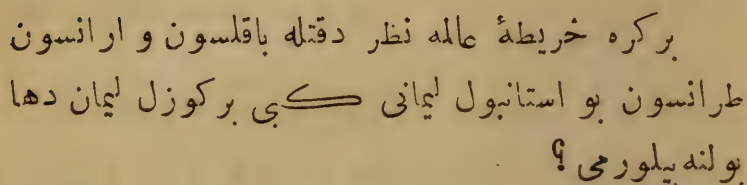 بر كره خريطهٔ عالمه نظر دقتله باقلسون و ارانسون
طرانسون بو استانبول ليمانى كبى بر كوزل ليمان دها
بولنه بيلورمى ؟